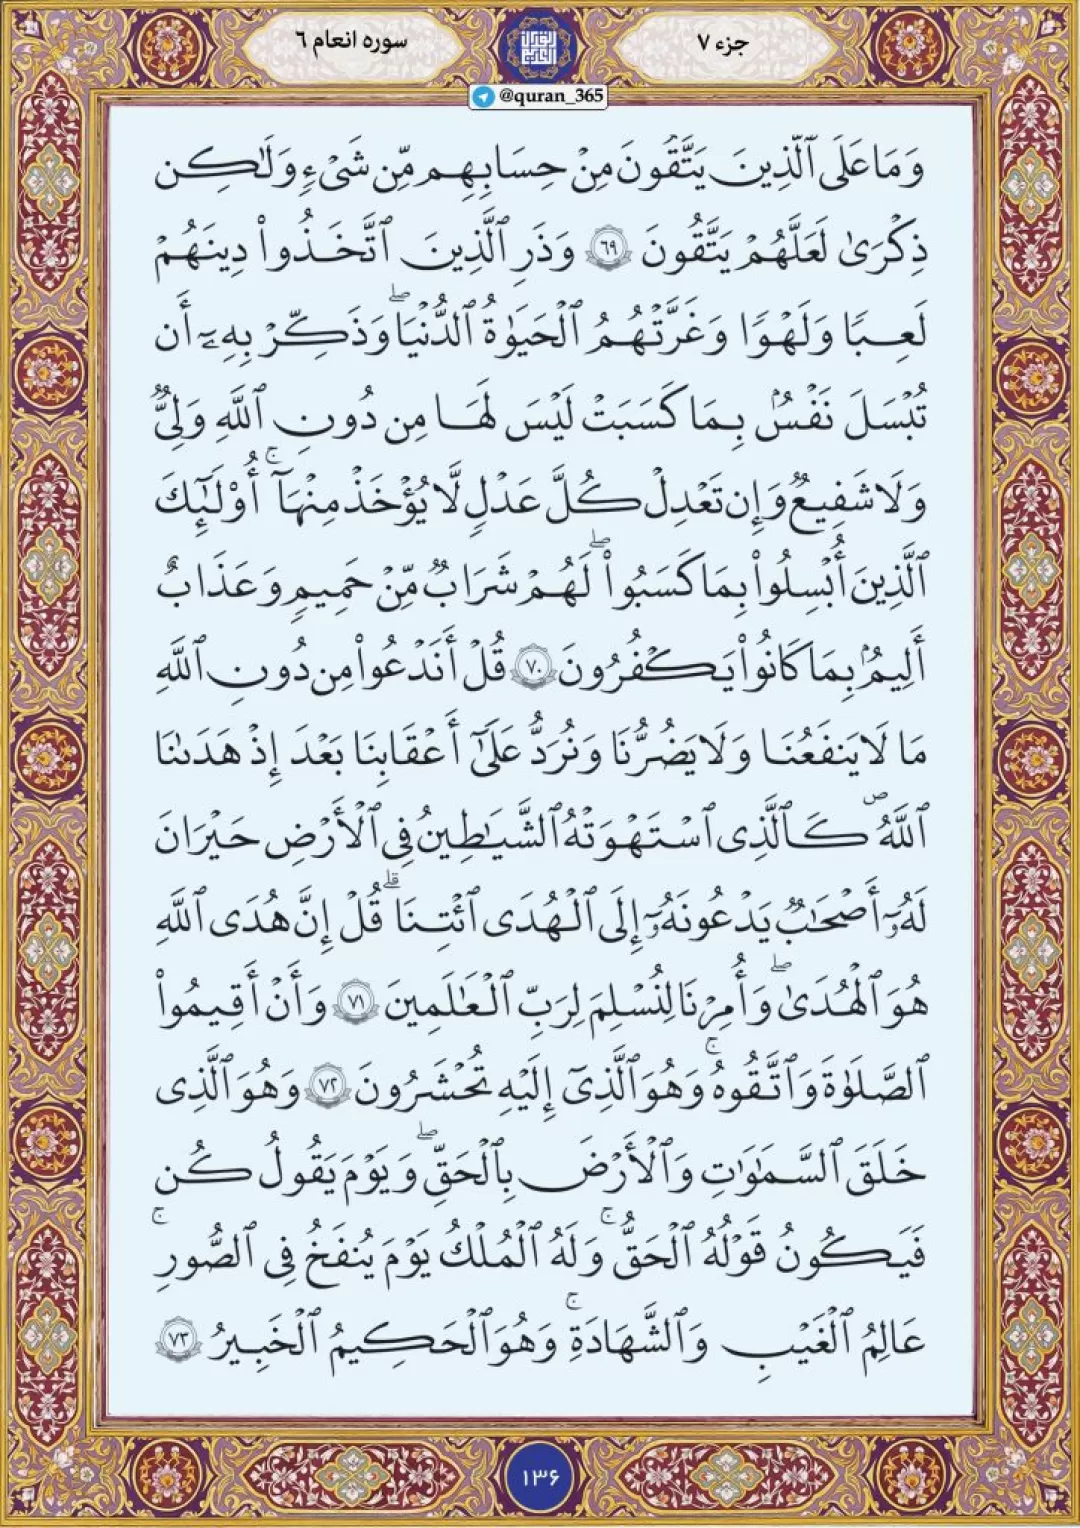 جزء ۷
سوره انعام ۶
@quran_365
وَمَا عَلَى ٱلَّذِينَ يَتَّقُونَ مِنْ حِسَابِهِم مِّن شَىْءٍ وَلَـٰكِن
ذِكْرَىٰ لَعَلَّهُمْ يَتَّقُونَ ۶۹ وَذَرِ ٱلَّذِينَ ٱتَّخَذُوا۟ دِينَهُمْ
لَعِبًا وَلَهْوًا وَغَرَّتْهُمُ ٱلْحَيَوٰةُ ٱلدُّنْيَا ۖ وَذَكِّرْ بِهِۦٓ أَن
تُبْسَلَ نَفْسٌۢ بِمَا كَسَبَتْ لَيْسَ لَهَا مِن دُونِ ٱللَّهِ وَلِىٌّ
وَلَا شَفِيعٌ وَإِن تَعْدِلْ كُلَّ عَدْلٍ لَّا يُؤْخَذْ مِنْهَآ ۚ أُو۟لَـٰٓئِكَ
ٱلَّذِينَ أُبْسِلُوا۟ بِمَا كَسَبُوا۟ ۖ لَهُمْ شَرَابٌ مِّنْ حَمِيمٍ وَعَذَابٌ
أَلِيمٌۢ بِمَا كَانُوا۟ يَكْفُرُونَ ۷۰ قُلْ أَنَدْعُوا۟ مِن دُونِ ٱللَّهِ
مَا لَا يَنفَعُنَا وَلَا يَضُرُّنَا وَنُرَدُّ عَلَىٰٓ أَعْقَابِنَا بَعْدَ إِذْ هَدَىٰنَا
ٱللَّهُ كَٱلَّذِى ٱسْتَهْوَتْهُ ٱلشَّيَـٰطِينُ فِى ٱلْأَرْضِ حَيْرَانَ
لَهُۥٓ أَصْحَـٰبٌ يَدْعُونَهُۥٓ إِلَى ٱلْهُدَى ٱئْتِنَا ۗ قُلْ إِنَّ هُدَى ٱللَّهِ
هُوَ ٱلْهُدَىٰ ۖ وَأُمِرْنَا لِنُسْلِمَ لِرَبِّ ٱلْعَـٰلَمِينَ ۷۱ وَأَنْ أَقِيمُوا۟
ٱلصَّلَوٰةَ وَٱتَّقُوهُ ۚ وَهُوَ ٱلَّذِىٓ إِلَيْهِ تُحْشَرُونَ ۷۲ وَهُوَ ٱلَّذِى
خَلَقَ ٱلسَّمَـٰوَٰتِ وَٱلْأَرْضَ بِٱلْحَقِّ ۖ وَيَوْمَ يَقُولُ كُن
فَيَكُونُ ۚ قَوْلُهُ ٱلْحَقُّ ۚ وَلَهُ ٱلْمُلْكُ يَوْمَ يُنفَخُ فِى ٱلصُّورِ ۚ
عَالِمُ ٱلْغَيْبِ وَٱلشَّهَادَةِ ۚ وَهُوَ ٱلْحَكِيمُ ٱلْخَبِيرُ ۷۳
۱۳۶